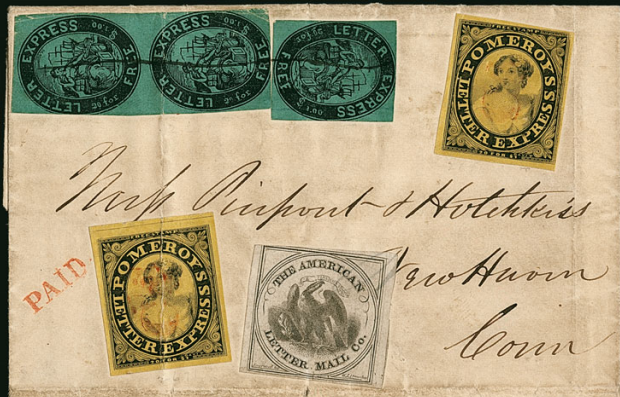 LETTER EXPRESS FREE
LETTER EXPRESS FREE
LETTER EXPRESS FREE
FREE STAMP
POMEROY'S
LETTER EXPRESS
Mess Pierpont & Hotchkiss
New Haven
Conn
PAID
FREE STAMP
POMEROY'S
LETTER EXPRESS
THE AMERICAN
LETTER MAIL Co.